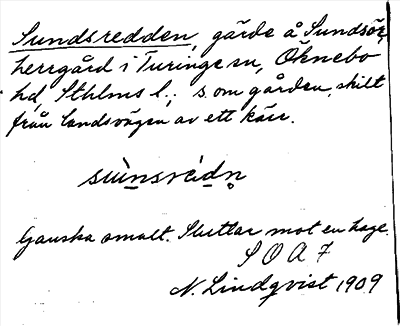 Sundsredden, gärde å Sundsör,
herrgård i Turinge sn, Öknebo
hd, Sthlms l.; s. om gården, skilt
från landsvägen av ett kärr.
suǹnsrèdn̥
Ganska smalt. Sluttar mot en hage.
S O A 7
N. Lindqvist 1909